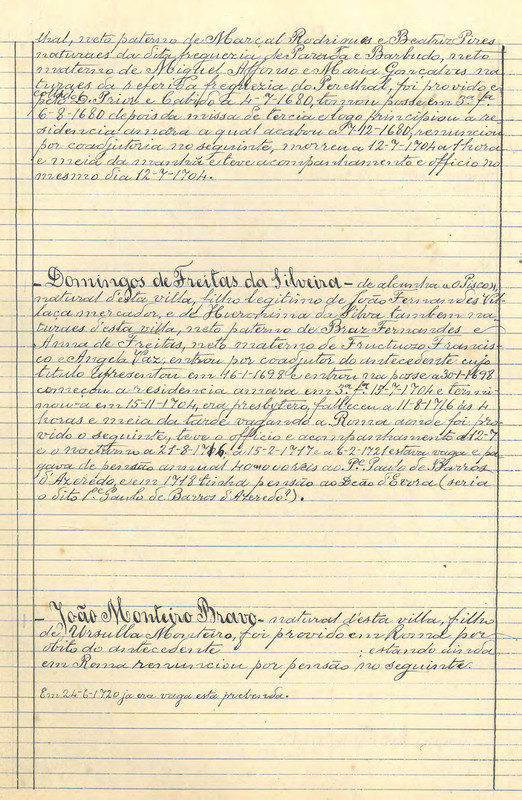 thal, neto paterno de Marçal Rodrigues e Beatriz Pires
naturaes da dita freguezia de Parada e Barbudo, neto
materno de Miguel Affonso e Maria Gonçalves na
turaes da referida freguezia do Perelhal, foi provido e
collado
pelo D. Prior e Cabido a 4-7-1680, tomou posse em 3ª fª
6-8-1680 depois da missa de tercia e logo principiou a re
sidencia amara a qual acabou a 7-12-1680, renunciou
por coadjutoria no seguinte, morreu a 12-7-1704 a 1 hora
e meia da manhã e teve acompanhamento e officio no
mesmo dia 12-7-1704.
- Domingos de Freitas da Silveira - de alcunha "o Pisco",
natural d'esta villa, filho legitimo de João Fernandes
laça mercador, e de Hieronima da Silva tambem na
turaes d'esta villa, neto paterno de Braz Fernandes e
Anna de Freitas, neto materno de Fructuozo Francis
co e Angela Vaz, entrou por coadjutor do antecedente cujo
titulo apresentou em 16-1-1698 e entrou na posse a 30-1-1698
começou a residencia amara em 3ª fª 15-7-1704 e termi
nou-a em 15-11-1704, era presbytero, falleceu a 11-8-1716 ás 4
horas e meia da tarde vagando a Roma aonde foi pro
vido o seguinte, teve o officio e acompanhamento a 12-7
e o nocturno a 21-8-1716. a 15-2-1717 e a 6-2-1721 estava vaga e pa
gava de pensão annual 40000 reis ao Pᵉ Paulo de Barros
d'Azeredo, e em 1718 tinha pensão ao Deão d'Evora (seria
o dito Pᵉ Paulo de Barros d'Azeredo?).
- João Monteiro Bravo - natural d'esta villa, filho
de Ursulla Monteiro, foi provido em Roma por
obito do antecedente ; estando ainda
em Roma renunciou por pensão no seguinte.
Em 24-6-1720 já era vaga esta prebenda.